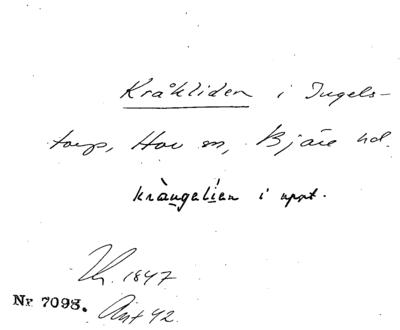 Kråkliden i Ingels-
torp, Hov sn, Bjäre hd.
kràngelíen i uppt.
1847
Nr 7093. Ant 42.